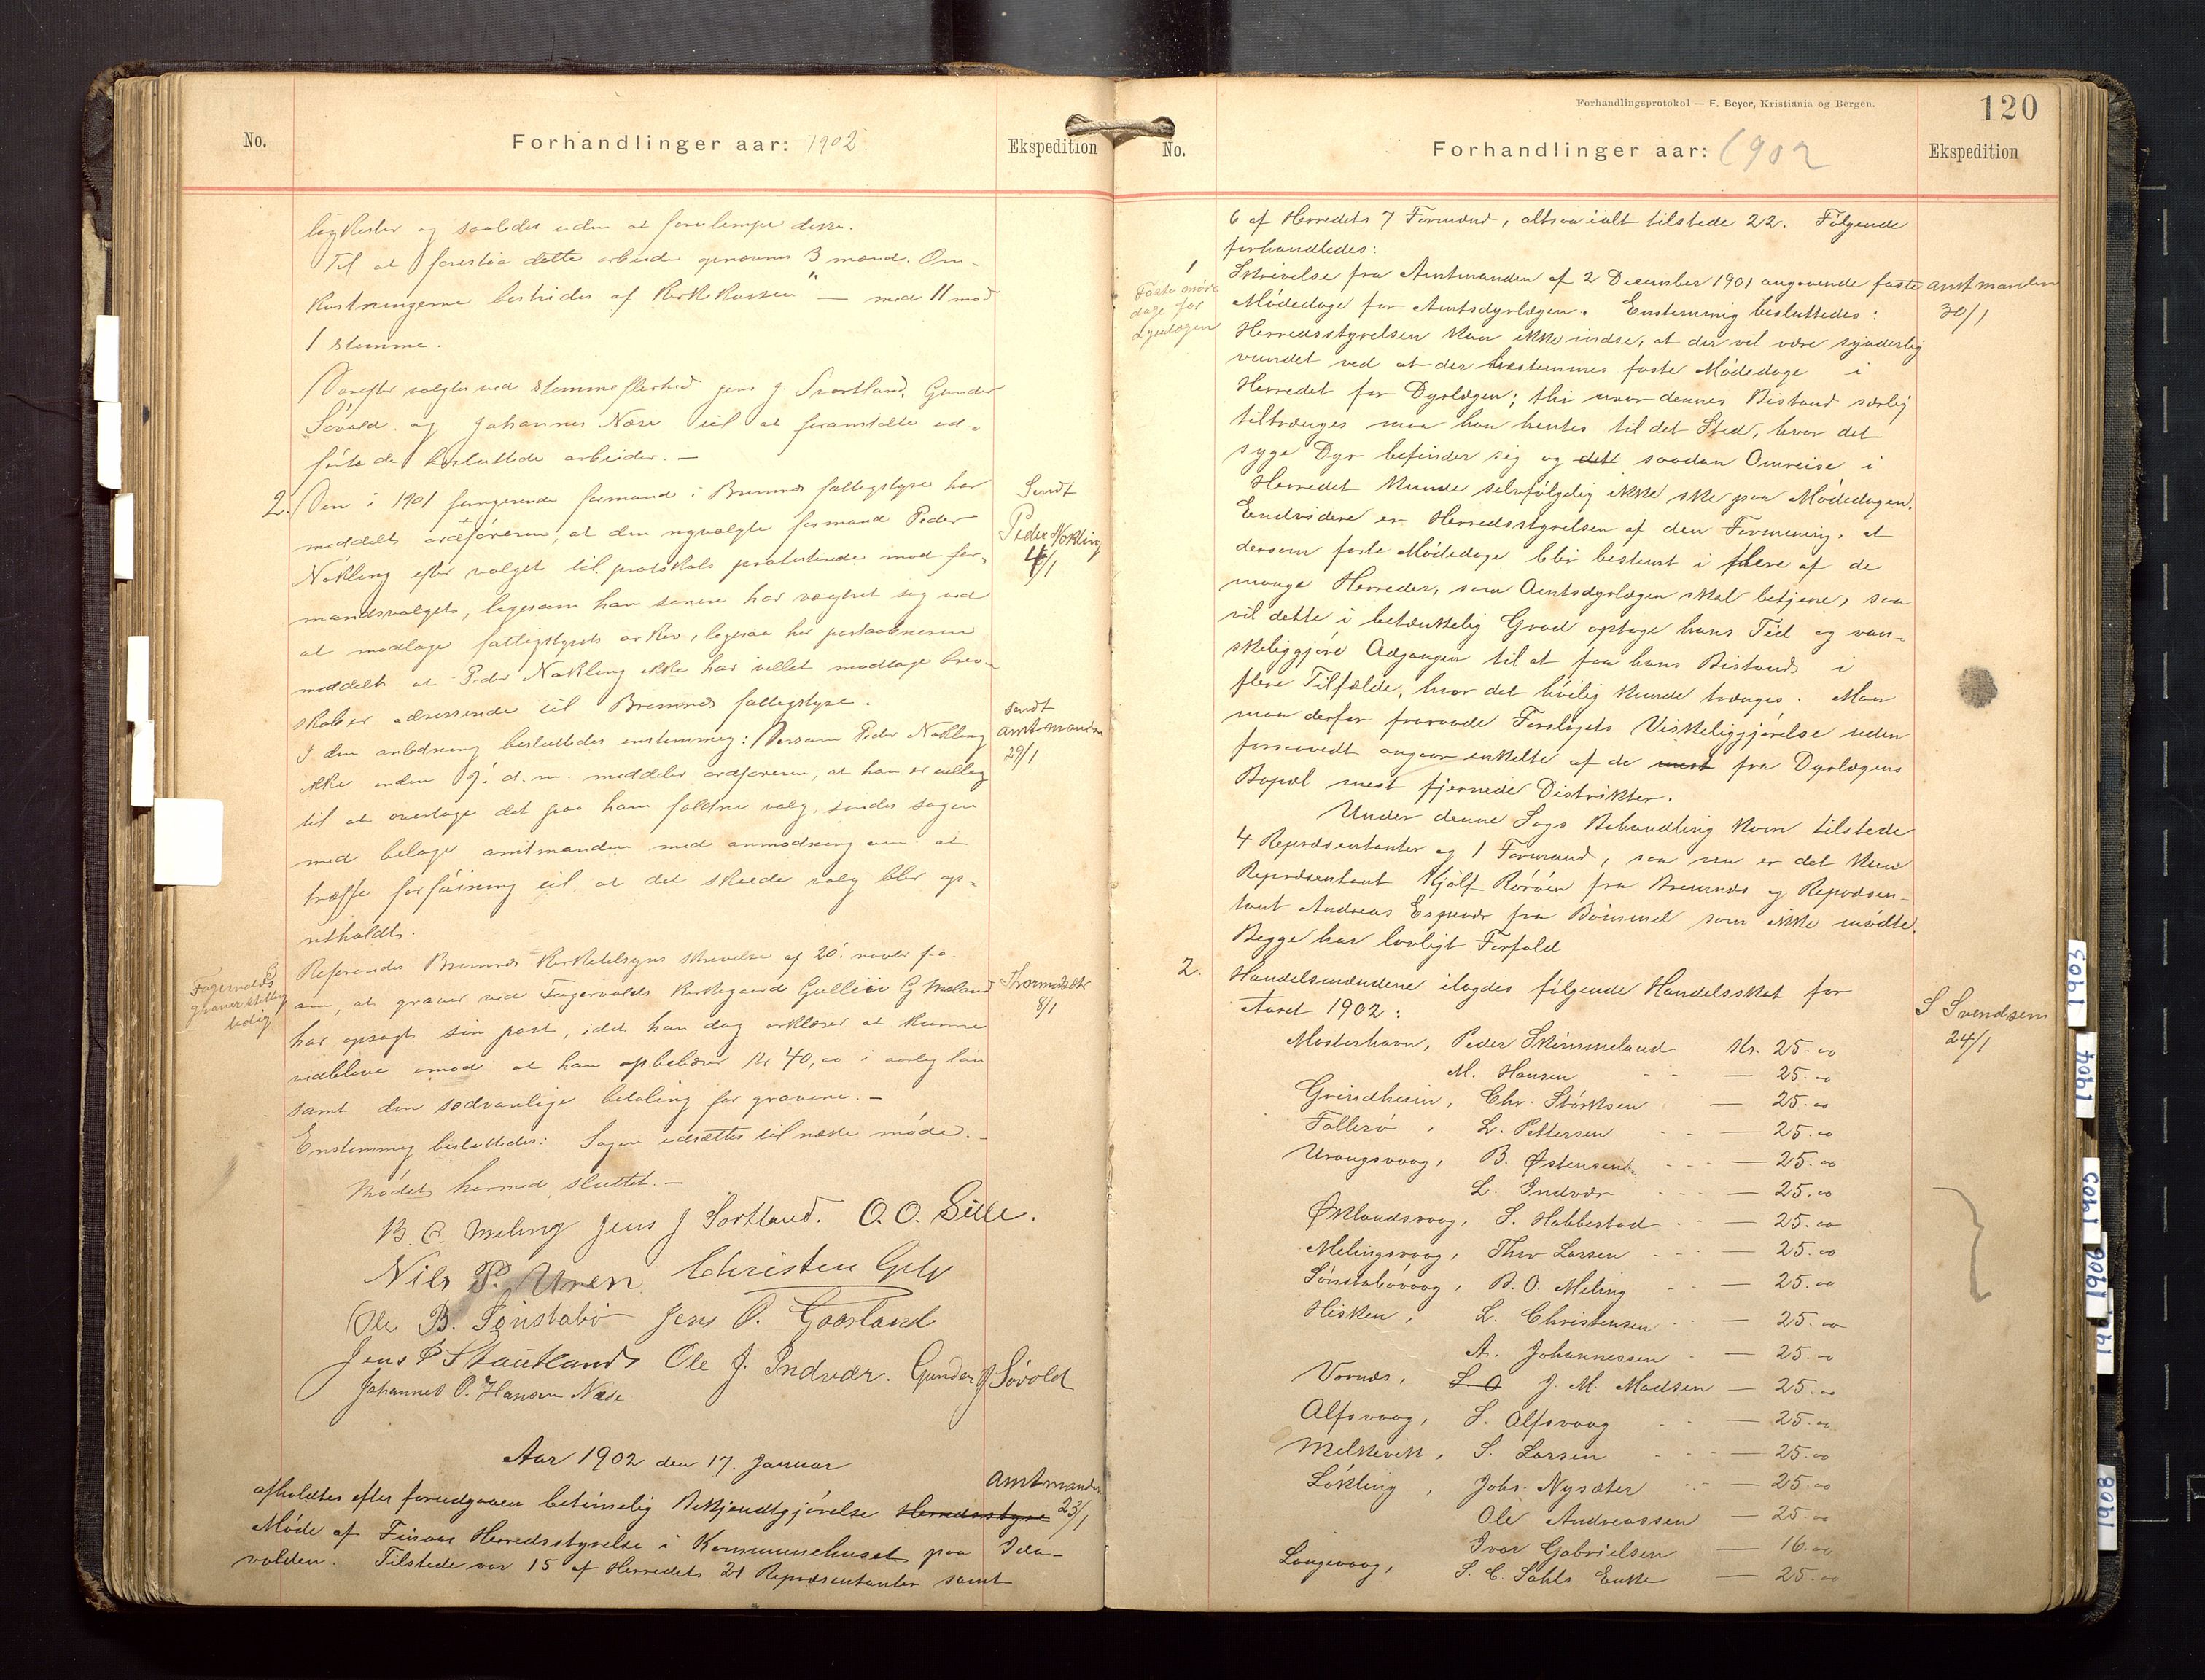 No.
Forhandlinger aar: 1902.
Ekspedition
ligkister og saaledes uden at forulempe disse.
Til at forestaa dette arbeide opnævnes 3 mænd. Om-
kostningerne bestrides af Kirkekassen" — med 11 mod
1 stemme.
Derefter valgtes ved stemmeflerhed Jens J. Svortland, Gunder
Søvold og Johannes Næse til at foranstalte ud-
ført de besluttede arbeider. —
2. Den i 1901 fungerende formand i Bremnes fattigstyre har
meddelt ordføreren, at den nyvalgte formand Peder
Nøkling efter valget til protokols protesterede mod for-
mandsvalget, ligesom han senere har vægret sig ved
at modtage fattigstyrets arkiv, ligesaa har postaabneren
meddelt at Peder Nøkling ikke har villet modtage brev-
skaber adresserede til Bremnes fattigstyre.
I den anledning besluttedes enstemmig: Dersom Peder Nøkling
ikke inden 9. d.m. meddeler ordføreren, at han er villig
til at overtage det paa ham faldne valg, sendes sagen
med bilage amtmanden med anmodning om at
træffe forføining til at det skeede valg blir op-
retholdt.
Sendt
Peder Nøkling
4/1
sendt
amtmanden
29/1
3
Fagervolds
graverstilling
ledig
Refereredes Bremnes Kirketilsyns skrivelse af 20. novbr f.a.
om, at graver ved Fagervolds Kirkegaard Gullik G Meland
har opsagt sin post, idet han dog erklærer at kunne
vidblive imod at han opbebærer Kr 40,00 i aarlig løn
samt den sædvanlige betaling for gravene. —
Enstemmig besluttedes: Sagen udsættes til næste møde. —
Mødet hermed sluttet. —
Thormodsæter
8/1
B. C. Meling Jens J Sortland. O. O. Sille.
Nils P. Uren Christen
Ole B. Sønstabø Jens O. Gaasland
Jens P Stautland Ole J. Indvær. Gunder J Søvold
Johannes O. Hansen Næse
Aar 1902 den 17. Januar
afholdtes efter forudgaaen betimelig Bekjendtgjørelse Herredsstyre
Møde af Finnaas Herredsstyrelse i Kommunehuset paa Ida-
volden. Tilstede var 15 af Herredets 21 Repræsentanter samt
Amtmanden
23/1
Forhandlingsprotokol — F. Beyer, Kristiania og Bergen.
120
No.
Forhandlinger aar: 1902
Ekspedition
6 af Herredets 7 Formænd, altsaa ialt tilstede 22. Følgende
forhandledes:
1
Faste møde
dage for
dyrlægen
Skrivelse fra Amtmanden af 2 December 1901 angaaende faste
Mødedage for Amtsdyrlægen. Enstemmig besluttedes:
Herredsstyrelsen kan ikke indse, at der vil være synderlig
vundet ved at der bestemmes faste Mødedage i
Herredet for Dyrlægen; thi naar dennes Bistand særlig
tiltrænges maa han hentes til det Sted, hvor det
syge Dyr befinder sig og dett saadan Omreise i
Herredet kunde selvfølgelig ikke ske paa Mødedagen.
Endvidere er Herredsstyrelsen af den Formening, at
dersom faste Mødedage blir bestemt i flere af de
mange Herreder, som Amtsdyrlægen skal betjene, saa
vil dette i betænkelig Grad optage hans Tid og van-
skeliggjøre Adgangen til at faa hans Bistand i
flere Tilfælde, hvor det høilig kunde trænges. Man
maa derfor fraraade Forslagets Virkeliggjørelse uden
forsaavidt angaar enkelte af de mest fra Dyrlægens
Bopæl mest fjernede Distrikter.
Under denne Sags Behandling kom tilstede
4 Repræsentanter og 1 Formand, saa nu er det kun
Repræsentant Kjølf Rørøen fra Bremnes og Repræsen-
tant Andreas Espevær fra Bømmel som ikke mødte.
Begge har lovligt Forfald
amtmanden
30/1
2. Handelsmændene ilagdes følgende Handelsskat for
Aaret 1902:
S Svendsen
24/1
Mosterhavn, Peder Skimmeland Kr. 25.00
M. Hansen — 25.00
Grindheim, Chr. Størksen — 25.00
Follesø, L. Pettersen — 25.00
Urangsvaag, B. Østensen — 25.00
L. Indvær — 25.00
Øklandsvaag, S. Habbestad — 25.00
Melingsvaag, Thro Larsen — 25.00
Sønstabøvaag, B. O. Meling — 25.00
Hisken, L. Christensen — 25.00
A. Johannessen — 25.00
Vornæs, L O J. M. Madsen — 25.00
Alfsvaag, S. Alfsvaag — 25.00
Melkevik, S. Larsen — 25.00
Løkling, Johs. Nysæter — 25.00
Ole Andreassen — 25.00
Ivar Gabrielsen — 16.00
Langevaag, S. C. Sahls Enke — 25.00
1903
1904
1905
1906
1908